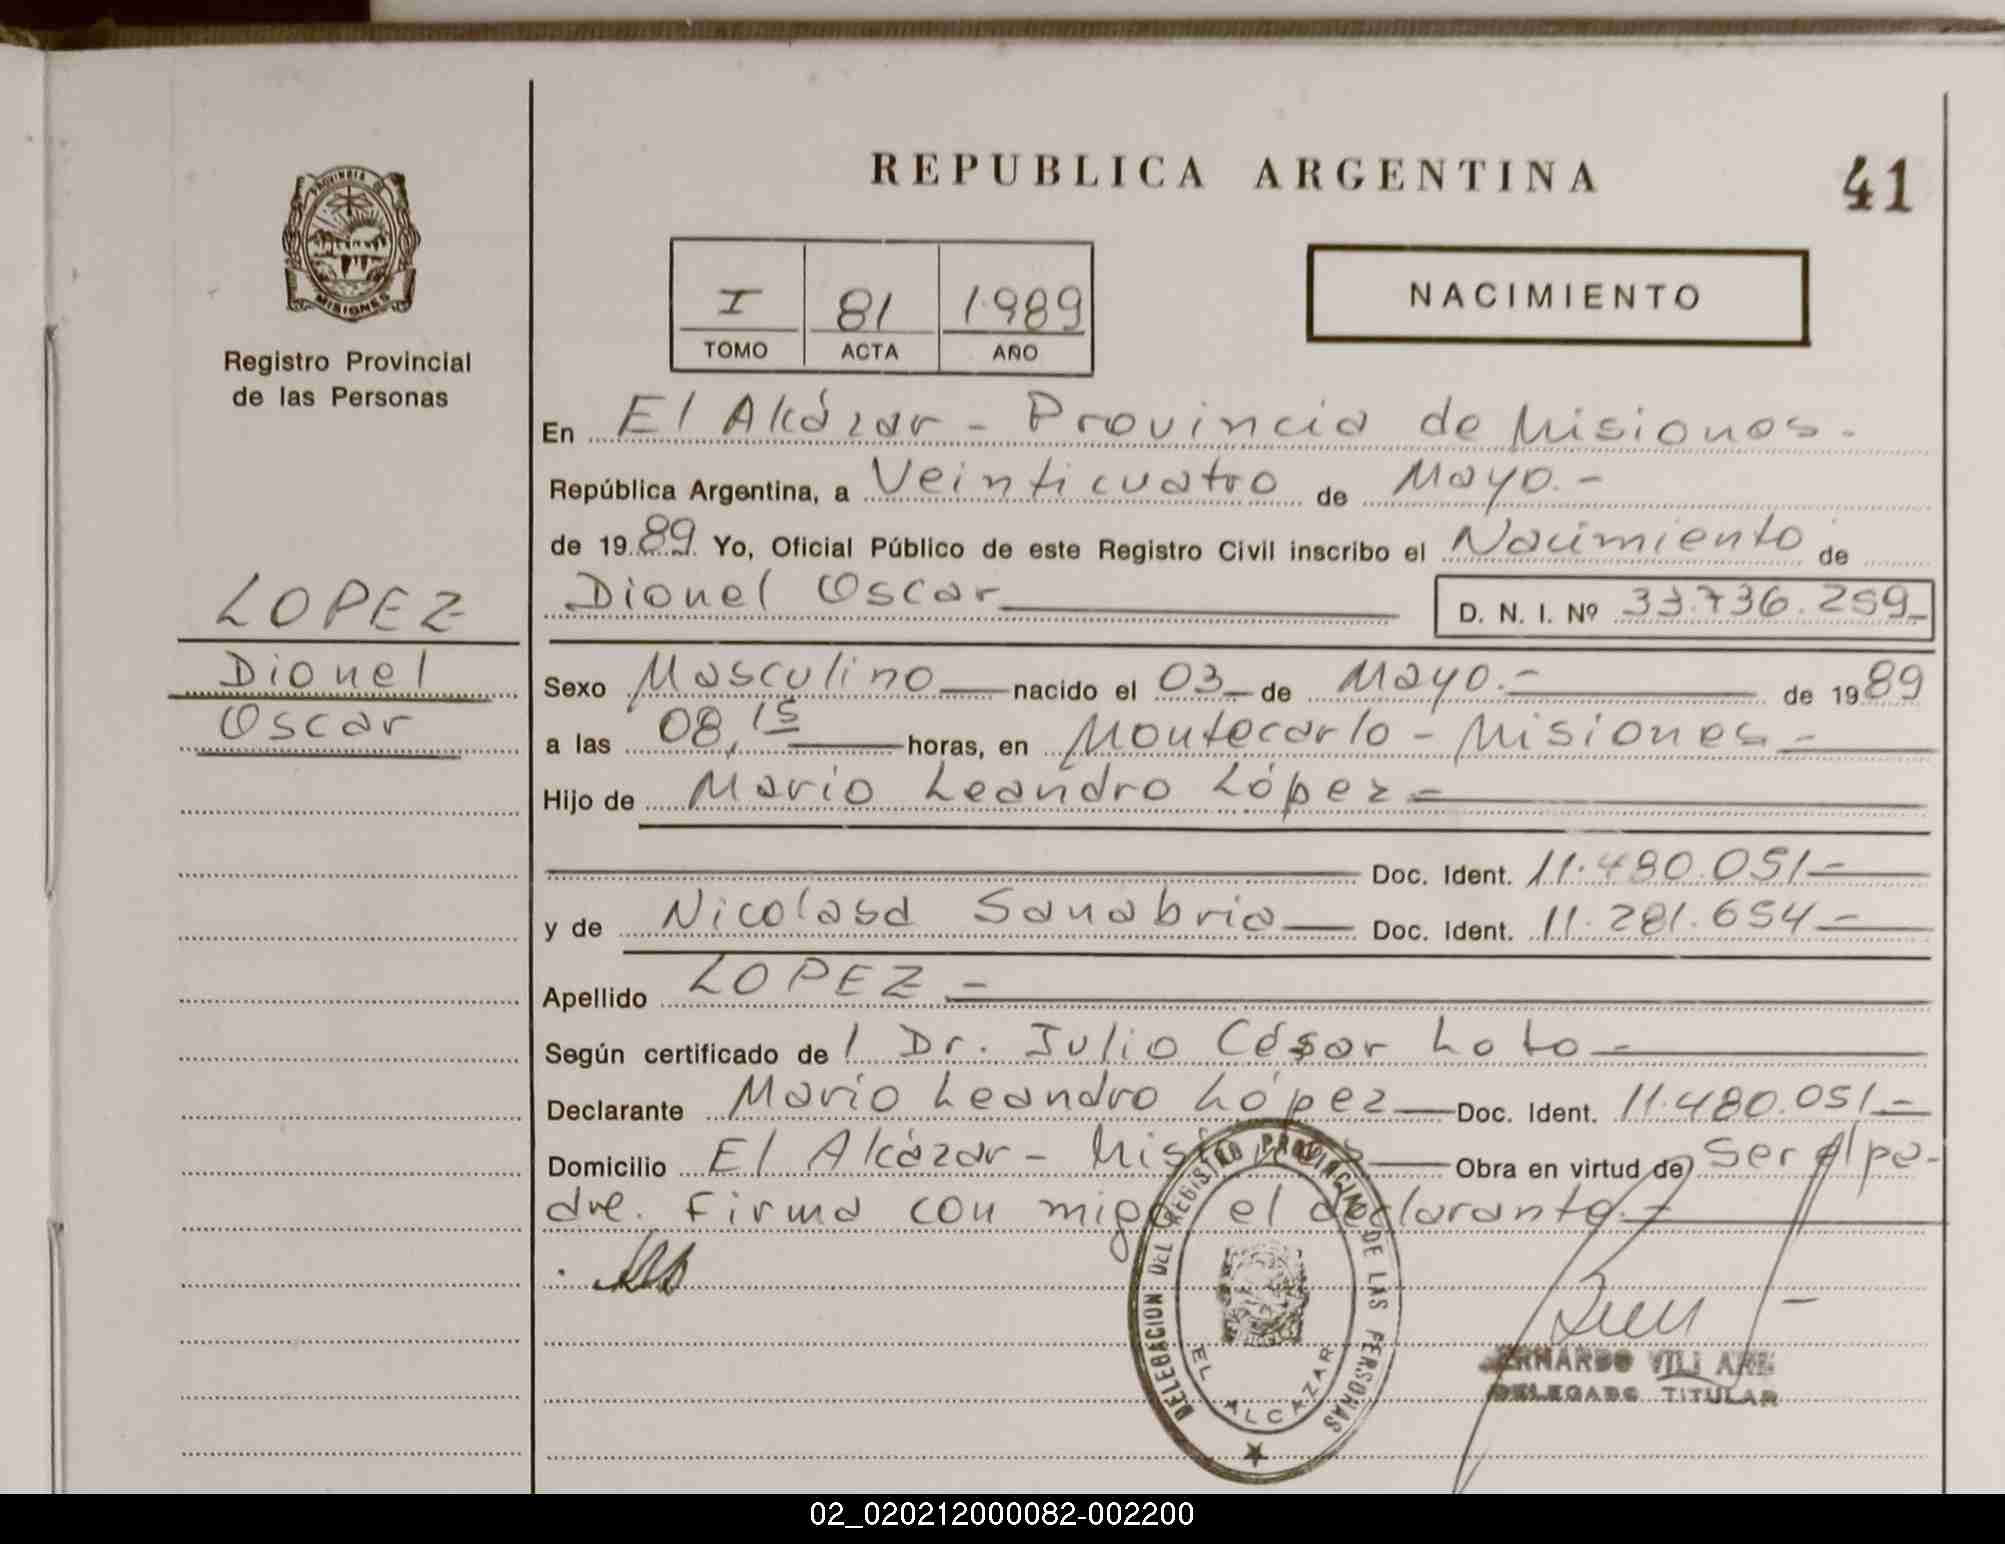 REPUBLICA ARGENTINA
41
PROVINCIA DE
MISIONES
Registro Provincial
de las Personas
I 81 1989
TOMO ACTA AÑO
NACIMIENTO
LOPEZ
Dionel
Oscar
En El Alcázar - Provincia de Misiones.-
República Argentina, a Veinticuatro de Mayo.-
de 1989 Yo, Oficial Público de este Registro Civil inscribo el Nacimiento de
Dionel Oscar D. N. I. Nº 33.736.259
Sexo Masculino nacido el 03 de Mayo.- de 1989
a las 08,15 horas, en Montecarlo - Misiones -
Hijo de Mario Leandro López -
Doc. Ident. 11.480.051 -
y de Nicolasa Sanabria Doc. Ident. 11.281.654 -
Apellido LOPEZ -
Según certificado de l Dr. Julio César Loto -
Declarante Mario Leandro López Doc. Ident. 11.480.051 -
Domicilio El Alcázar - Misiones Obra en virtud de Ser el pa-
dre. Firma con migo el declarante.-
DELEGACION DEL REGISTRO PROVINCIAL DE LAS PERSONAS
EL ALCAZAR
DELEGADO TITULAR
02_020212000082-002200